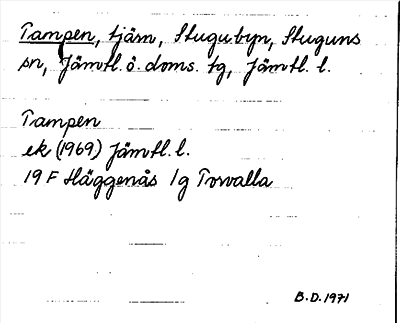 Tampen, tjärn, Stugubyn, Stuguns
sn, Jämtl. ö. doms. tg, Jämtl. l.
Tampen
ek (1969) Jämtl. l.
19 F Häggenås 1g Torvalla
B.D. 1971